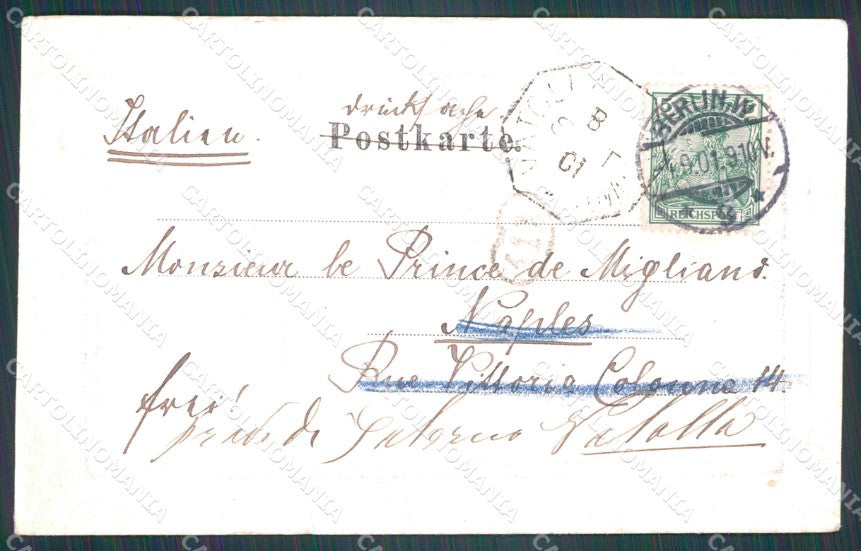 Drucksache
Italien.
Postkarte.
BERLIN.W
9.01.9-10V.
REICHSPOST
8
01
Monsieur le Prince de Migliano.
Naples
Rue Vittoria Colonna 14.
frei!
Salerno Vatolla
CARTOLINOMANIA